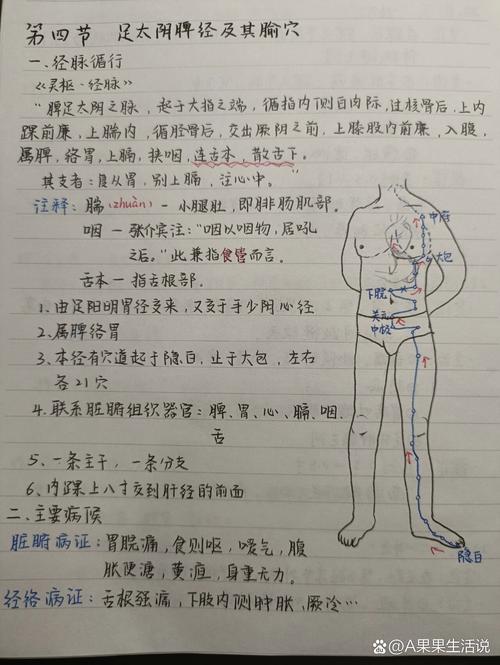 第四节 足太阴脾经及其腧穴
一、经脉循行
《灵枢·经脉》
"脾足太阴之脉，起于大指之端，循指内侧白肉际，过核骨后，上内
踝前廉，上腨内，循胫骨后，交出厥阴之前，上膝股内前廉，入腹，
属脾，络胃，上膈，挟咽，连舌本，散舌下。
其支者：复从胃，别上膈，注心中。
注释：腨(zhuàn)一小腿肚，即腓肠肌部。
咽一张介宾注："咽以咽物，居吼
之后。"此兼指食管而言。
舌本一指舌根部。
1.由足阳明胃经支来，又交于手少阴心经
2.属脾络胃
3.本经有穴道起于隐白，止于大包，左右
各21穴
4.联系脏腑组织器官：脾、胃、心、膈、咽、
舌
5、一条主干，一条分支
6.内踝上八寸交到肝经的前面
二、主要病候
脏腑病证：胃脘痛，食则呕，嗳气，腹
胀便溏，黄疸，身重无力。
经络病证：舌根强痛，下肢内侧肿胀，厥冷…
中府
大包
下脘
关元
中极
隐白
@A果果生活说